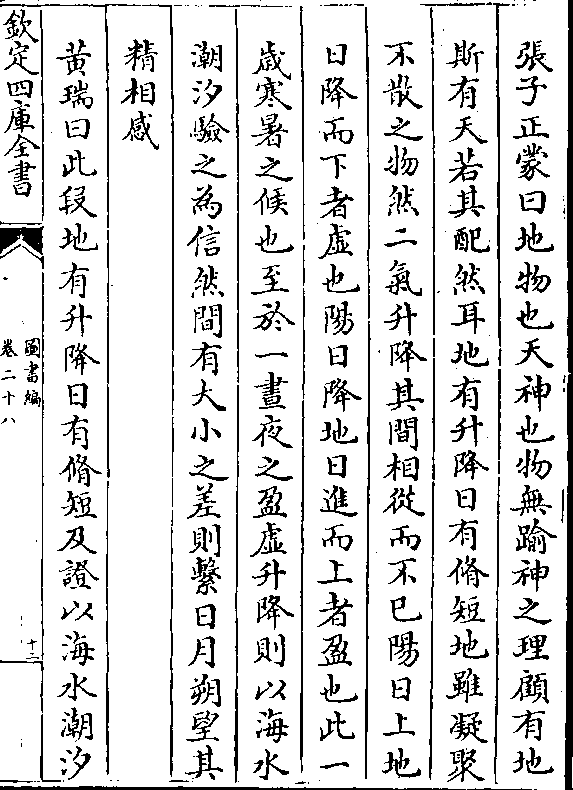 張子正蒙曰地物也天神也物無踰神之理顧有地
斯有天若其配然耳地有升降日有脩短地雖凝聚
不散之物然二氣升降其間相從而不已陽日上地
日降而下者虛也陽日降地日進而上者盈也此一
歳寒暑之候也至於一晝夜之盈虛升降則以海水
潮汐驗之為信然間有大小之差則繫日月朔望其
精相感
黄瑞曰此段地有升降日有脩短及證以海水潮汐
欽定四庫全書
圖書編
卷二十八
十二